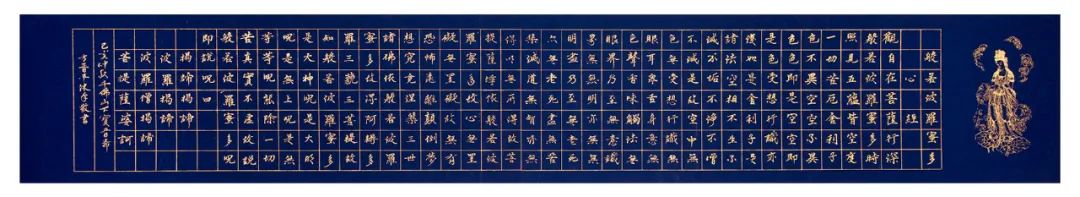 般若波羅蜜多
心經
觀自在菩薩行深
般若波羅蜜多時
照見五蘊皆空度
一切苦厄舍利子
色不異空空不異
色色即是空空即
是色受想行識亦
復如是舍利子是
諸法空相不生不
滅不垢不淨不增
不減是故空中無
色無受想行識無
眼耳鼻舌身意無
色聲香味觸法無
眼界乃至無意識
界無無明亦無無
明盡乃至無老死
亦無老死盡無苦
集滅道無智亦無
得以無所得故菩
提薩埵依般若波
羅蜜多故心無罣
礙無罣礙故無有
恐怖遠離顛倒夢
想究竟涅槃三世
諸佛依般若波羅
蜜多故得阿耨多
羅三藐三菩提故
知般若波羅蜜多
是大神呪是大明
呪是無上呪是無
等等呪能除一切
苦真實不虛故說
般若波羅蜜多呪
即說呪曰
揭諦揭諦
波羅揭諦
波羅僧揭諦
菩提薩婆訶
己亥
沐手敬書